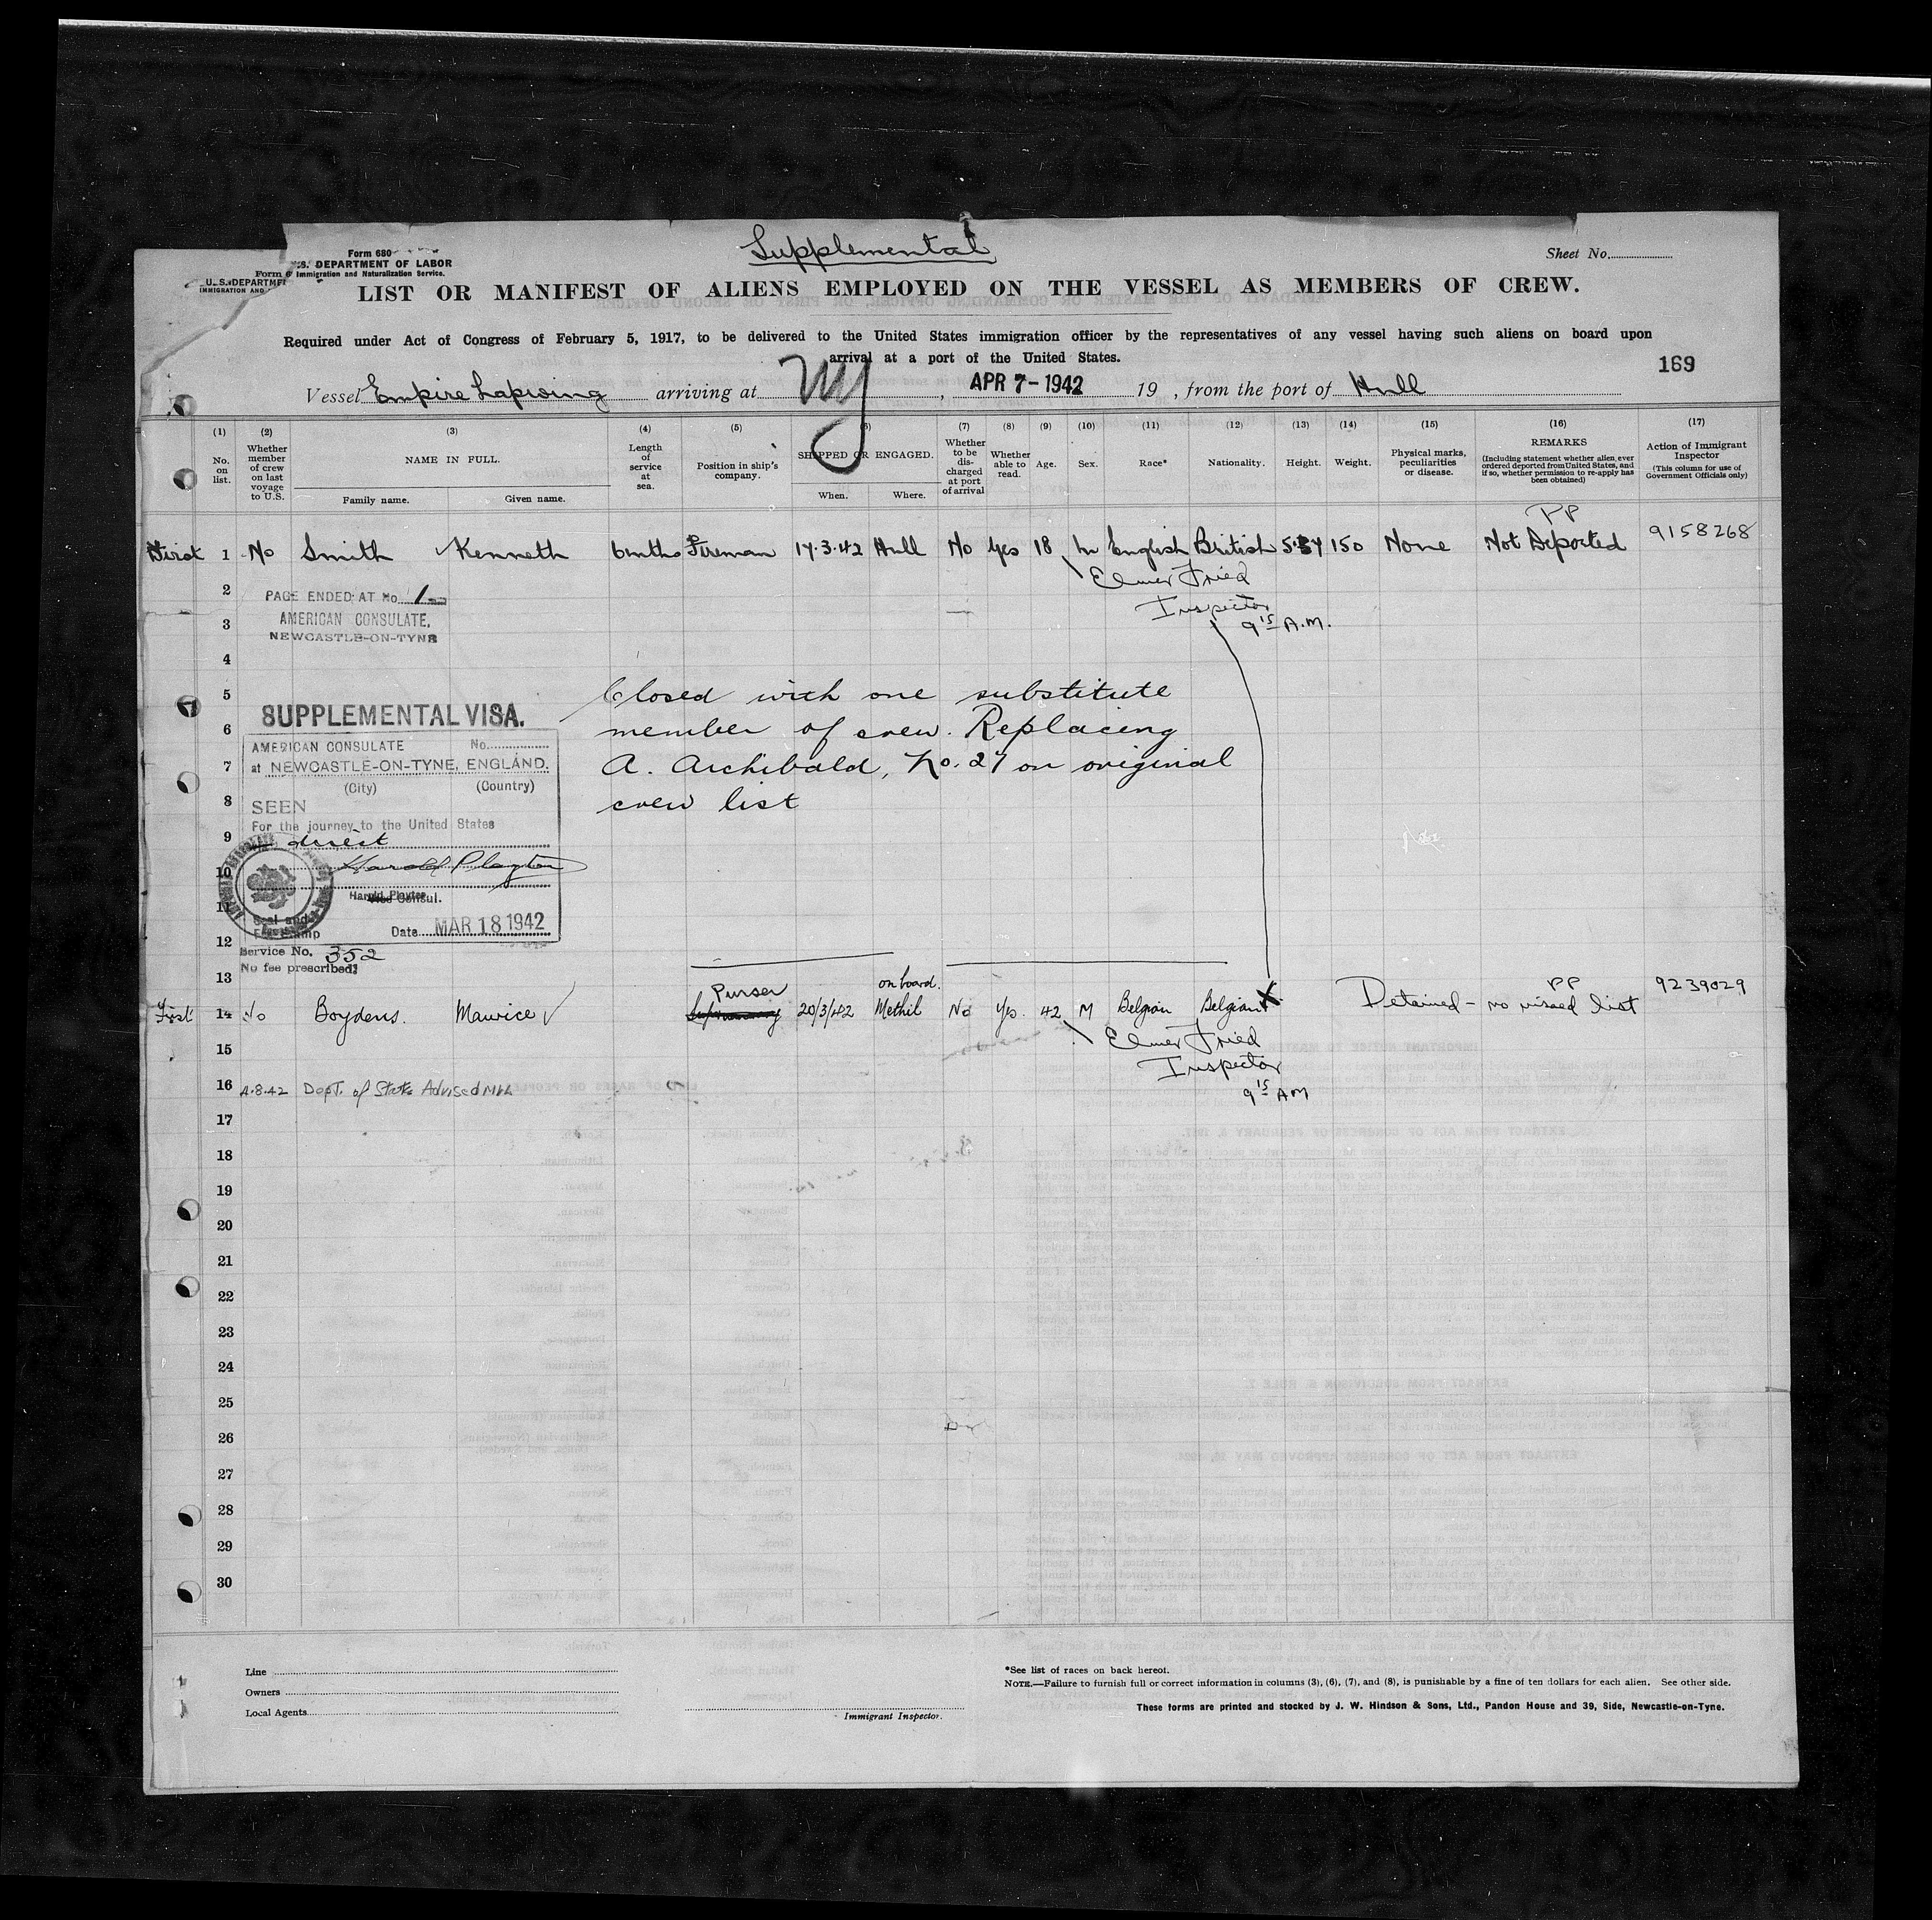 Supplemental
Form 680
U.S. DEPARTMENT OF LABOR
Immigration and Naturalization Service.
Form 6
U.S. DEPARTME
IMMIGRATION AND
Sheet No.
LIST OR MANIFEST OF ALIENS EMPLOYED ON THE VESSEL AS MEMBERS OF CREW.
Required under Act of Congress of February 5, 1917, to be delivered to the United States immigration officer by the representatives of any vessel having such aliens on board upon
arrival at a port of the United States.
169
Vessel Empire Lapwing arriving at NY, APR 7-1942 19 , from the port of Hull
(1) (2) (3) (4) (5) (6) (7) (8) (9) (10) (11) (12) (13) (14) (15) (16) (17)
No. on list.
Whether member of crew on last voyage to U.S.
NAME IN FULL.
Family name. Given name.
Length of service at sea.
Position in ship's company.
SHIPPED OR ENGAGED.
When. Where.
Whether to be discharged at port of arrival
Whether able to read.
Age.
Sex.
Race*
Nationality.
Height.
Weight.
Physical marks, peculiarities or disease.
REMARKS
(Including statement whether alien ever ordered deported from United States, and if so, whether permission to re-apply has been obtained)
Action of Immigrant Inspector
(This column for use of Government Officials only)
PP
First 1 No Smith Kenneth 6 mths Fireman 17.3.42 Hull No Yes 18 M English British 150 None Not Deported 9158268
Elmer Fried
Inspector
9 15 A.M.
2
PAGE ENDED AT No 1
3
AMERICAN CONSULATE,
NEWCASTLE-ON-TYNE
4
5
Closed with one substitute
SUPPLEMENTAL VISA.
6
member of crew. Replacing
AMERICAN CONSULATE No.
7
A. Archibald, No. 27 on original
at NEWCASTLE-ON-TYNE, ENGLAND.
(City) (Country)
8
crew list
SEEN
For the journey to the United States
9
direct
10
Harold Playter
11
Harold Playter
Vice Consul.
Seal and
Fee Stamp
Date MAR 18 1942
12
Service No. 352
No fee prescribed.
13
Purser on board. PP
First 14 No Boydens. Maurice 20/3/42 Methil No Yes 42 M Belgian Belgian X Detained - no visaed list 9239029
Elmer Fried
Inspector
9 15 AM
15
16 4.8.42 Dept. of State Advised
17
18
19
20
21
22
23
24
25
26
27
28
29
30
Line
Owners
Local Agents
Immigrant Inspector.
*See list of races on back hereof.
NOTE.—Failure to furnish full or correct information in columns (3), (6), (7), and (8), is punishable by a fine of ten dollars for each alien. See other side.
These forms are printed and stocked by J. W. Hindson & Sons, Ltd., Pandon House and 39, Side, Newcastle-on-Tyne.